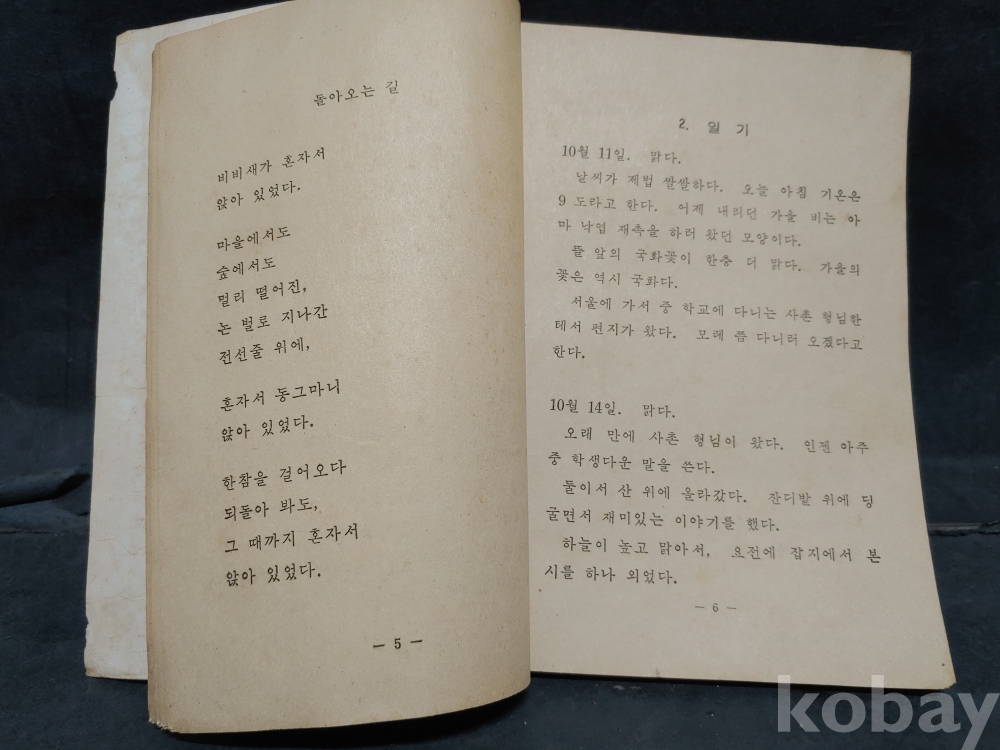 돌아오는 길
비비새가 혼자서
앉아 있었다.
마을에서도
숲에서도
멀리 떨어진,
논 벌로 지나간
전선줄 위에,
혼자서 동그마니
앉아 있었다.
한참을 걸어오다
되돌아 봐도,
그 때까지 혼자서
앉아 있었다.
— 5 —
2. 일 기
10월 11일. 맑다.
날씨가 제법 쌀쌀하다. 오늘 아침 기온은
9 도라고 한다. 어제 내리던 가을 비는 아
마 낙엽 재촉을 하러 왔던 모양이다.
뜰 앞의 국화꽃이 한층 더 맑다. 가을의
꽃은 역시 국화다.
서울에 가서 중 학교에 다니는 사촌 형님한
테서 편지가 왔다. 모레 쯤 다니러 오겠다고
한다.
10월 14일. 맑다.
오래 만에 사촌 형님이 왔다. 인젠 아주
중 학생다운 말을 쓴다.
둘이서 산 위에 올라갔다. 잔디밭 위에 딩
굴면서 재미있는 이야기를 했다.
하늘이 높고 맑아서, 요전에 잡지에서 본
시를 하나 외었다.
— 6 —
kobay